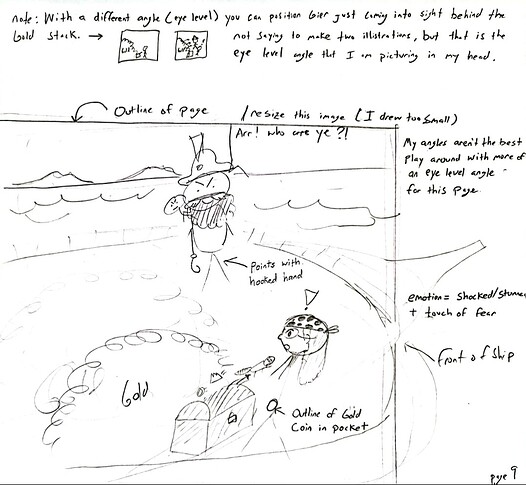 note: With a different angle (eye level) you can position Gier just coming into sight behind the
Gold stack. → not saying to make two illustrations, but that is the
eye level angle that I am picturing in my head.
Outline of page
/resize this image (I drew too small)
Arr! who are ye?!
My angles aren't the best
Play around with more of
an eye level angle
for this page.
Points with
hooked hand
emotion = Shocked/Stumed
+ touch of fear
Front of Ship
Gold
Outline of Gold
Coin in pocket
page 9